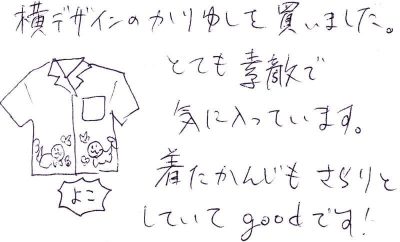 横デザインのかりゆしを買いました。
とても素敵で
気に入っています。
着たかんじもさらりと
していてgoodです!
よこ